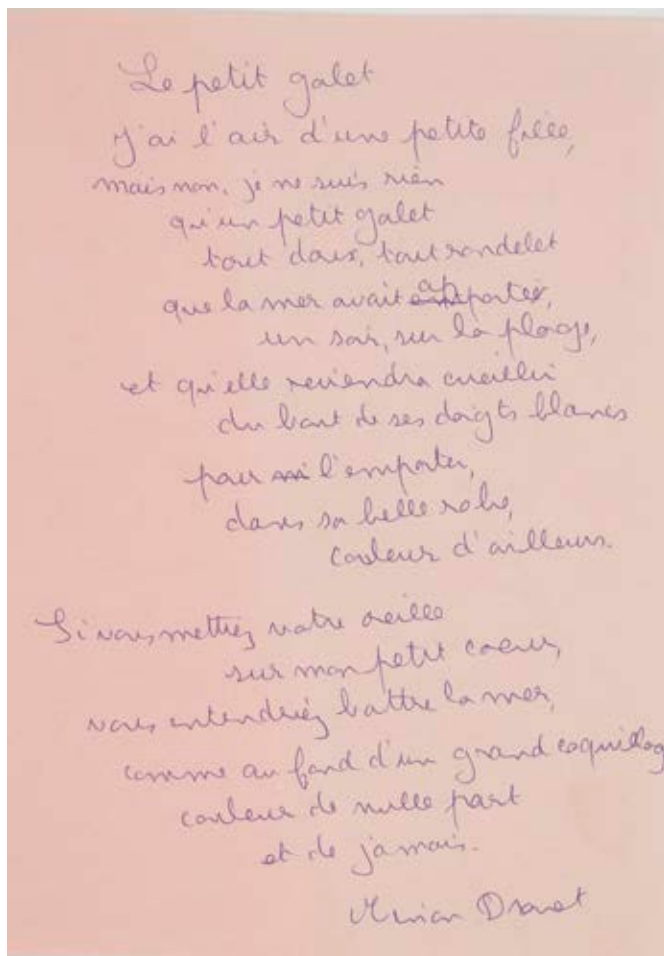 Le petit galet
J'ai l'air d'une petite fille,
mais non, je ne suis rien
qu'un petit galet
tout doux, tout rondelet
que la mer avait apporté,
un soir, sur la plage,
et qu'elle reviendra cueillir
du bout de ses doigts blancs
pour l'emporter,
dans sa belle robe,
couleur d'ailleurs.
Si vous mettiez votre oreille
sur mon petit coeur,
vous entendriez battre la mer,
comme au fond d'un grand coquillag
couleur de nulle part
et de jamais.
Minou Drouet